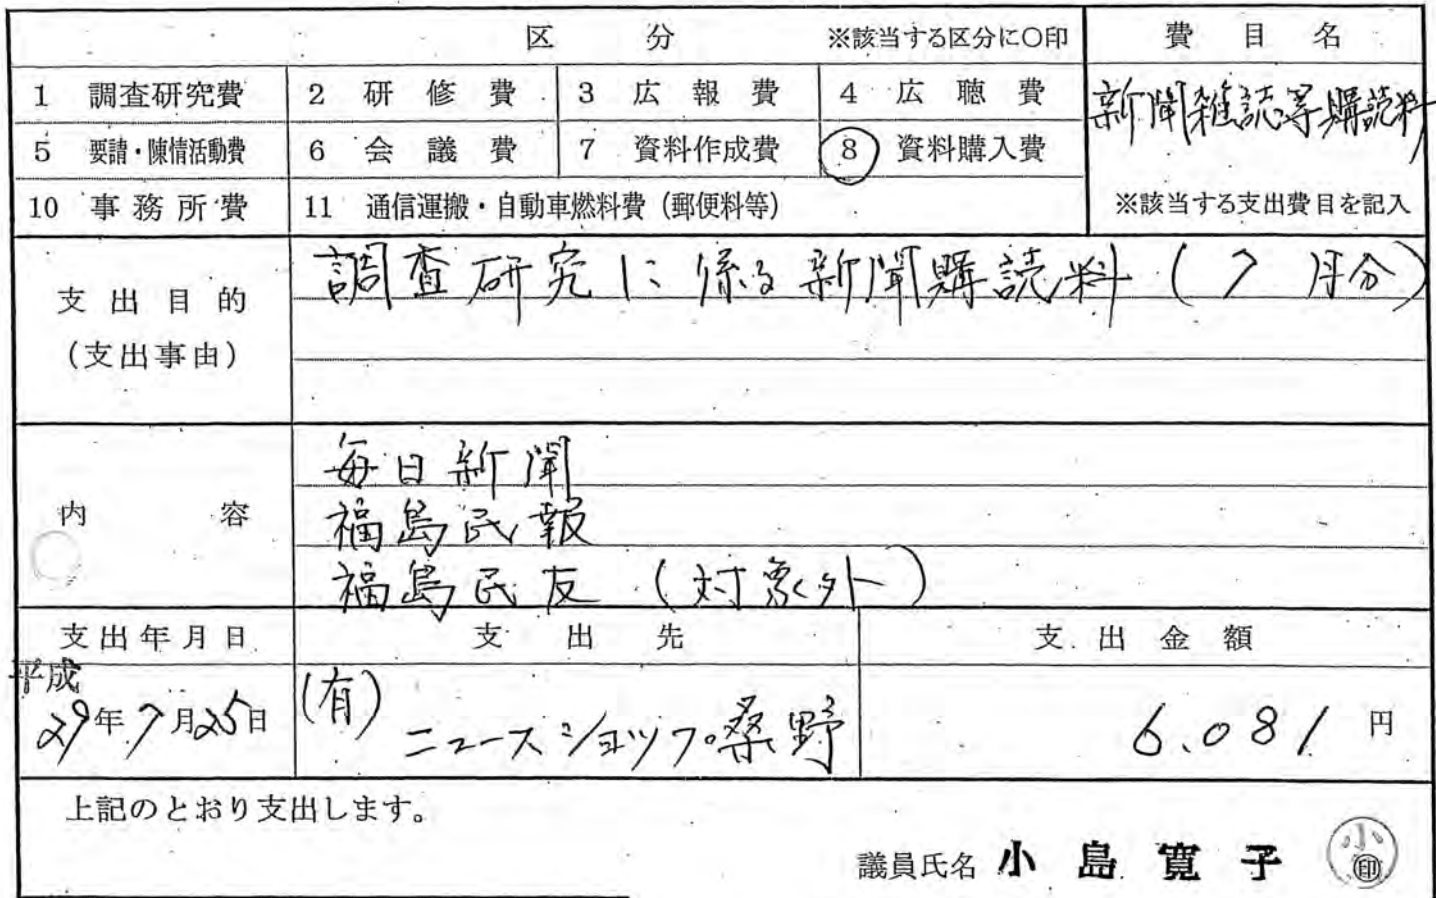 区 分 ※該当する区分に○印 費目名
1 調査研究費 2 研修費 3 広報費 4 広聴費 新聞雑誌等購読料
5 要請・陳情活動費 6 会議費 7 資料作成費 8 資料購入費
10 事務所費 11 通信運搬・自動車燃料費（郵便料等） ※該当する支出費目を記入
支出目的 調査研究に係る新聞購読料（7月分）
（支出事由）
毎日新聞
内容 福島民報
福島民友（対象外）
支出年月日 支出先 支出金額
平成
29年7月25日 (有)ニュースショップ桑野 6.081円
上記のとおり支出します。
議員氏名 小島寛子 小 印